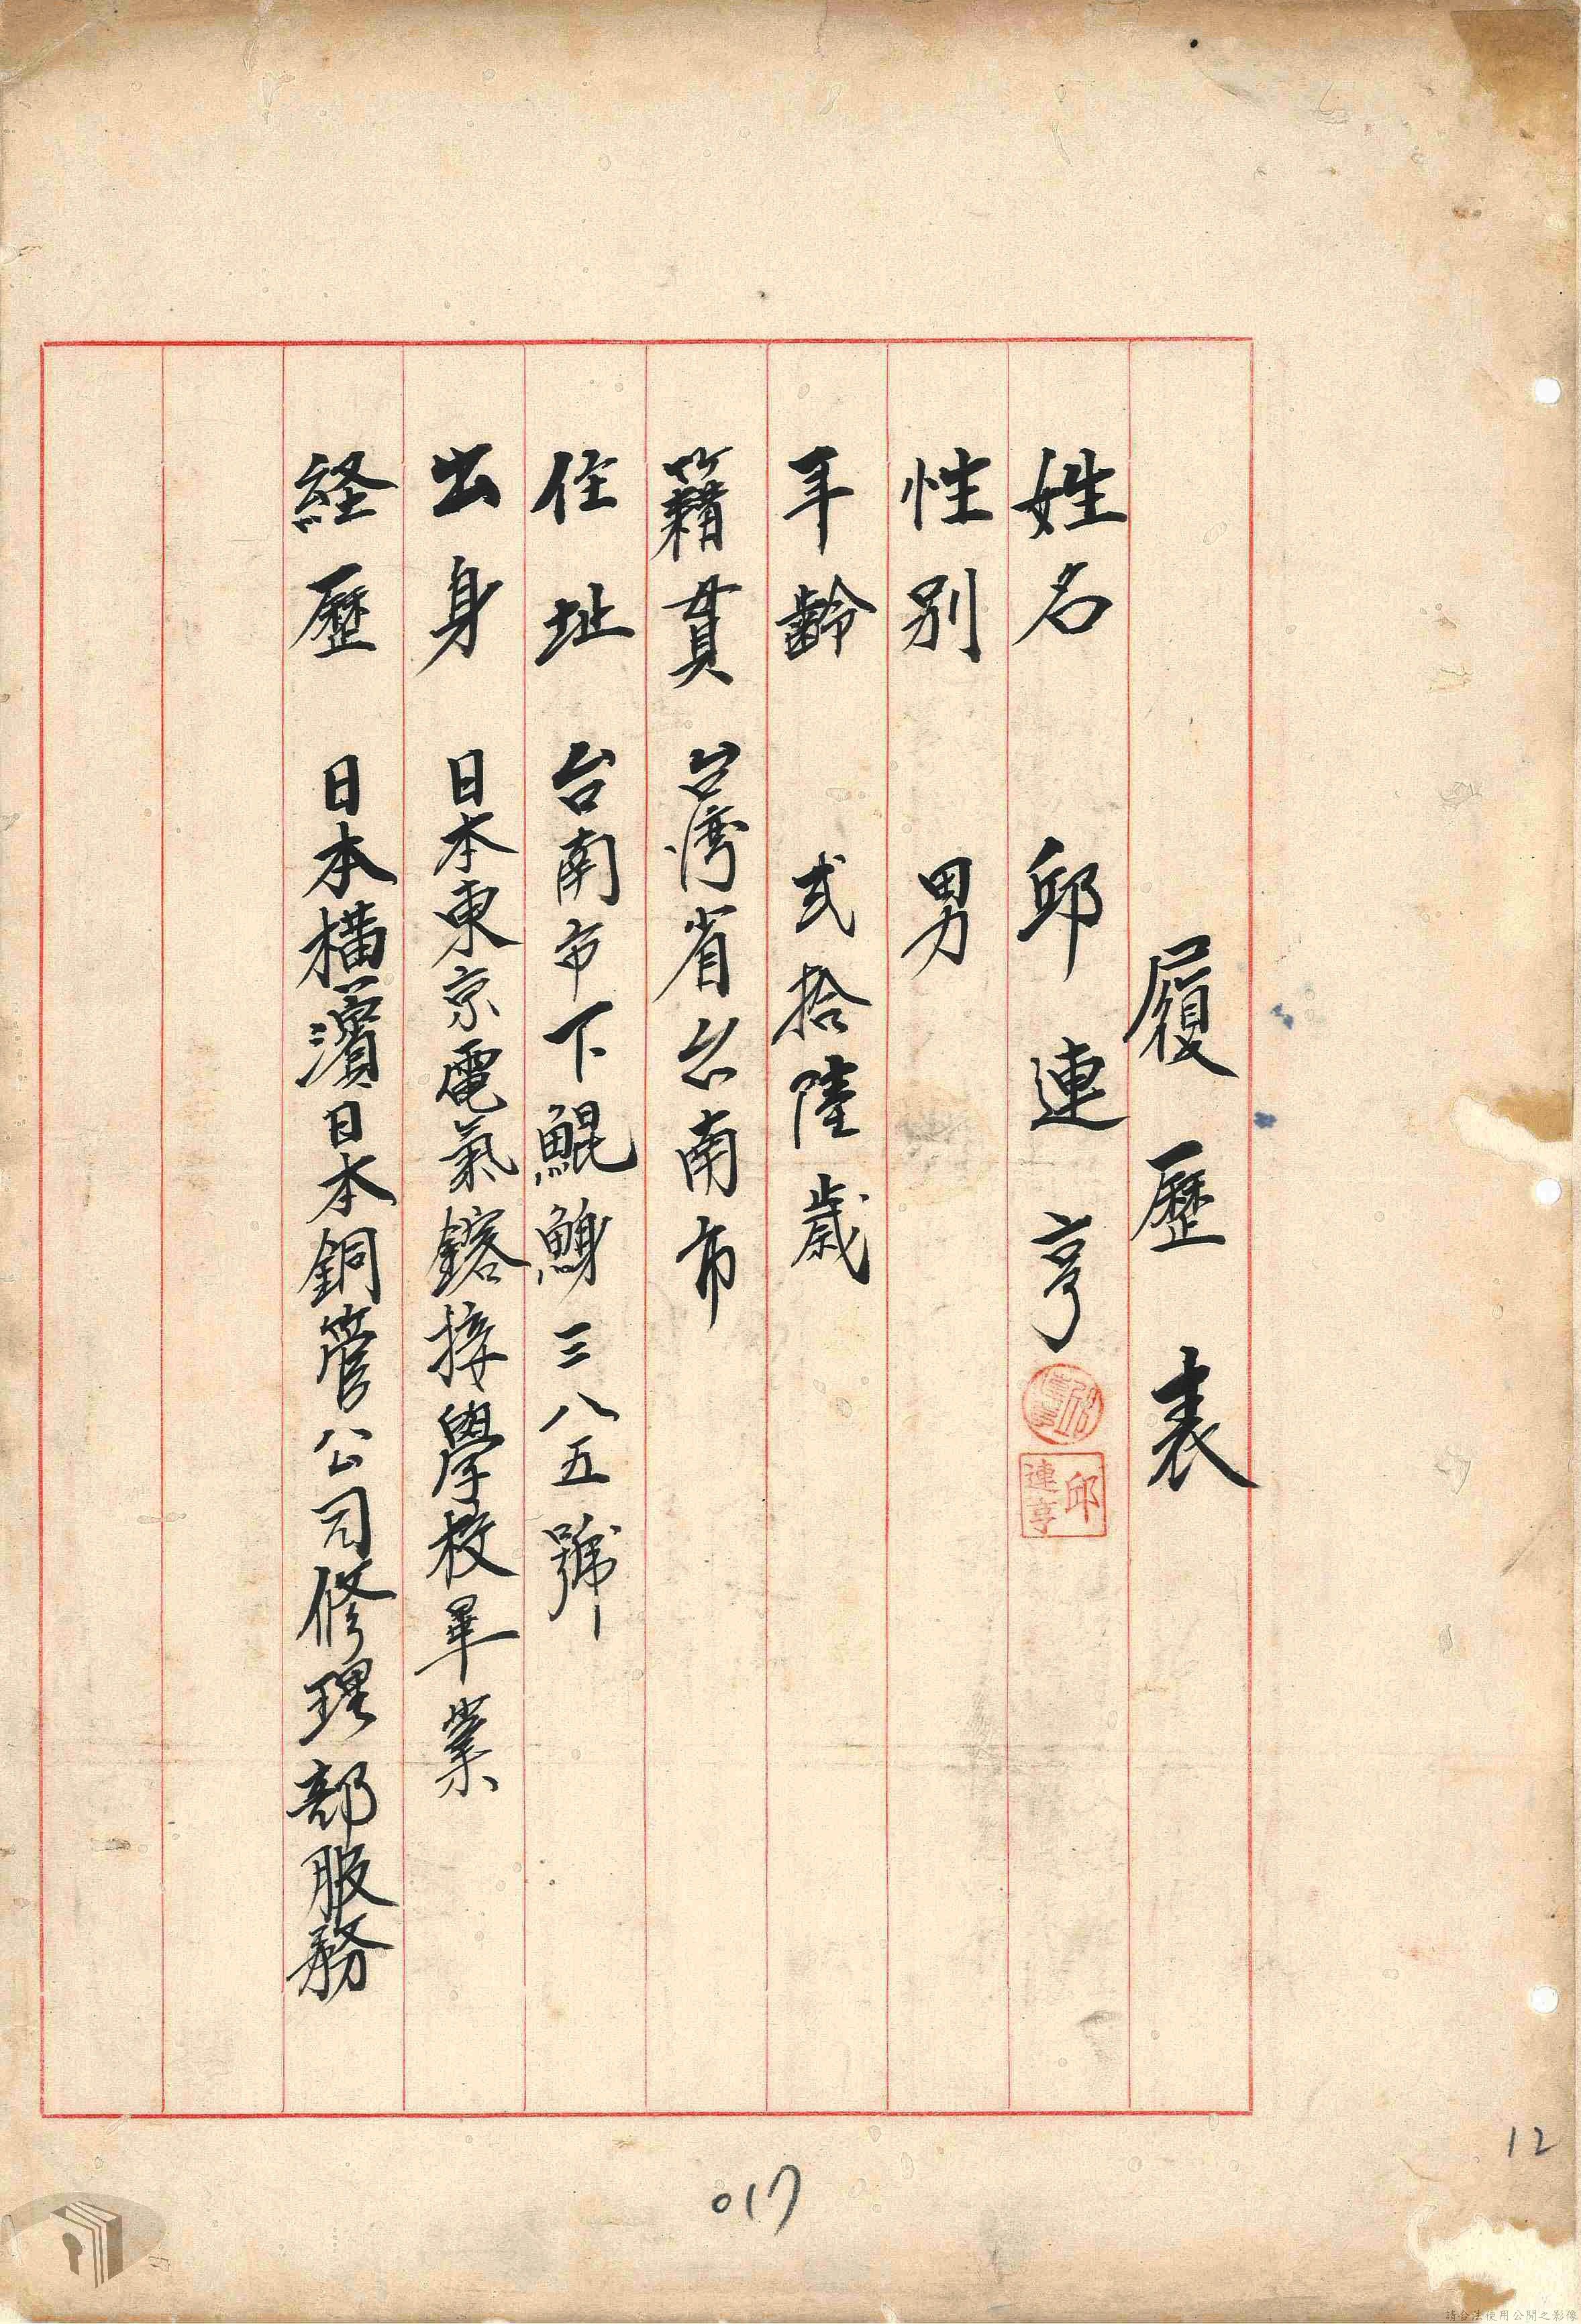 履歷表
姓名 邱連亨
邱連亨
性別 男
年齡 弍拾陸歲
籍貫 台湾省台南市
住址 台南市下鯤鯓三八五號
出身 日本東京電氣鎔接學校畢業
経歷 日本橫濱日本銅管公司修理部服務
017
12
請合法使用公開之影像